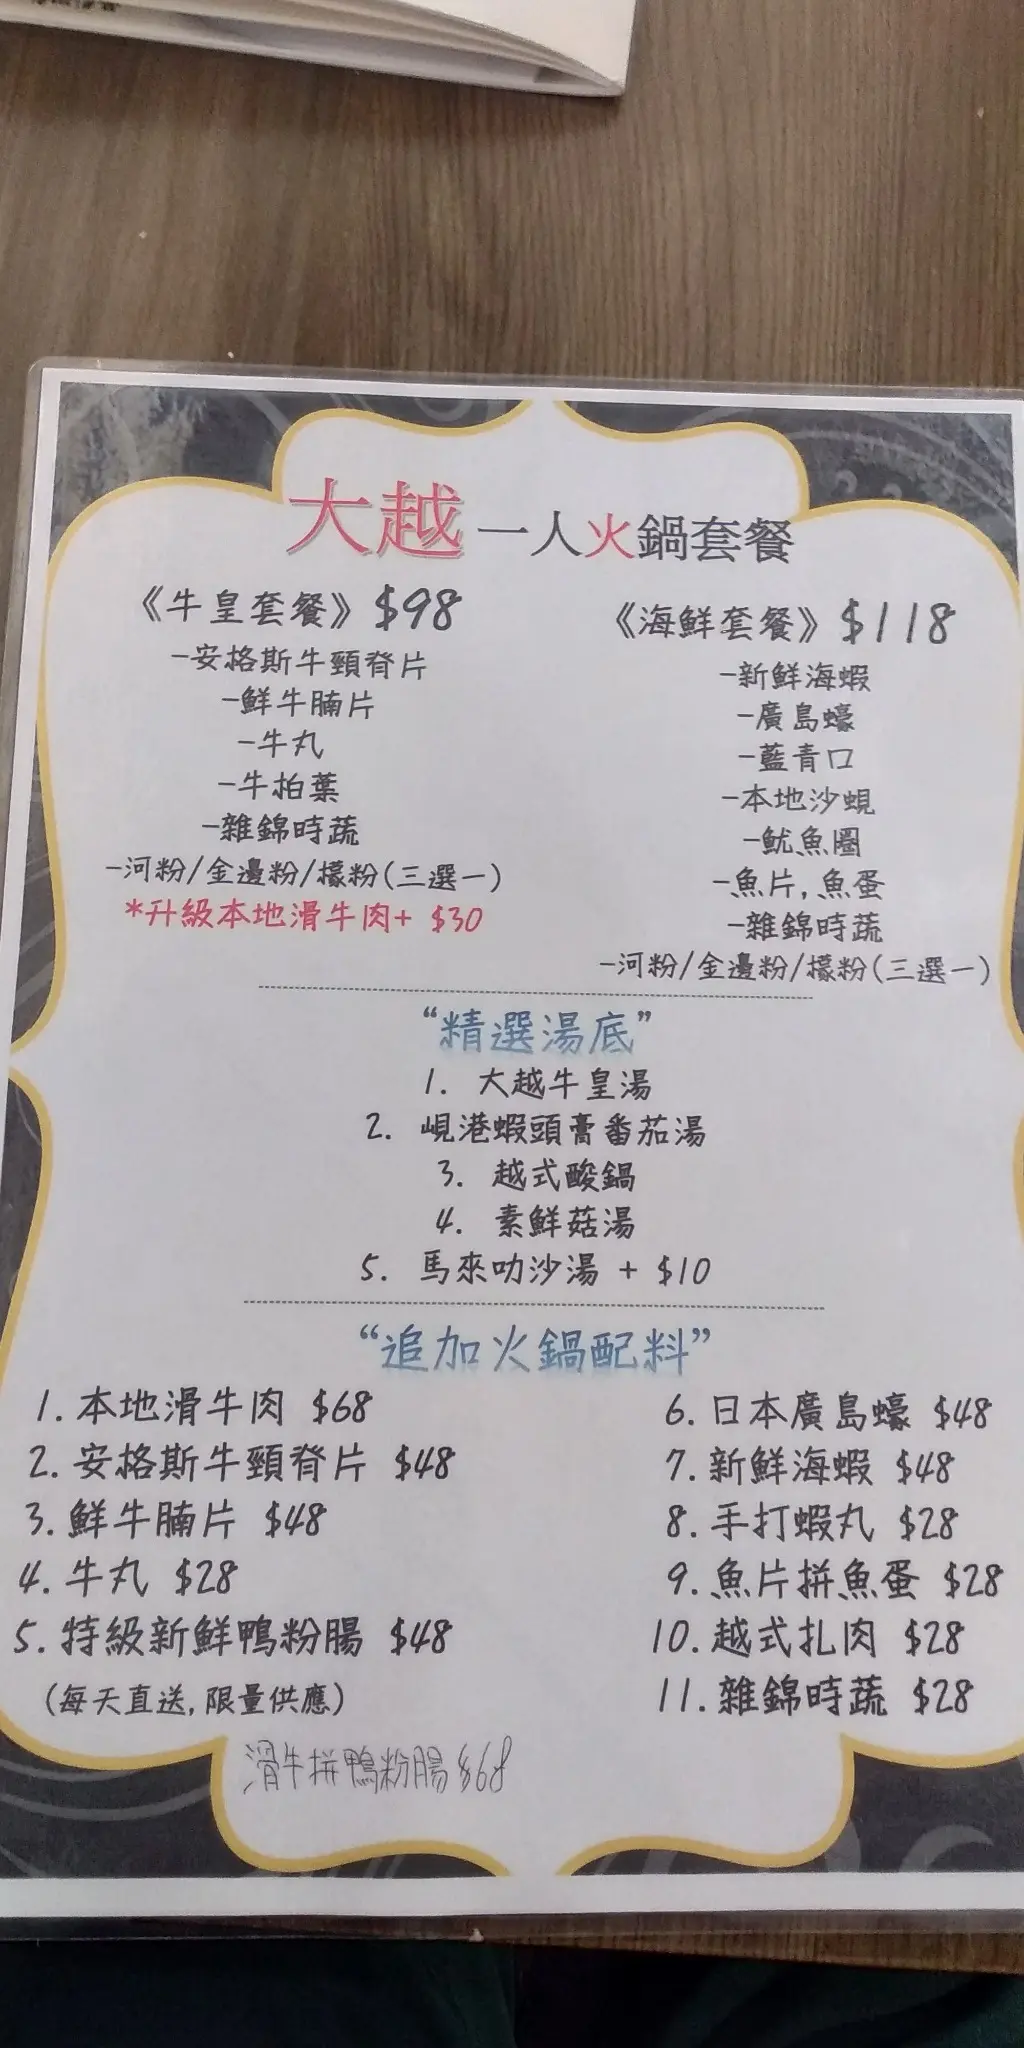 大越 一人火鍋套餐
《牛皇套餐》$98
-安格斯牛頸脊片
-鮮牛腩片
-牛丸
-牛柏葉
-雜錦時蔬
-河粉/金邊粉/檬粉(三選一)
*升級本地滑牛肉+ $30
《海鮮套餐》$118
-新鮮海蝦
-廣島蠔
-藍青口
-本地沙蜆
-魷魚圈
-魚片,魚蛋
-雜錦時蔬
-河粉/金邊粉/檬粉(三選一)
“精選湯底”
1. 大越牛皇湯
2. 峴港蝦頭膏番茄湯
3. 越式酸鍋
4. 素鮮菇湯
5. 馬來叻沙湯 + $10
“追加火鍋配料”
1. 本地滑牛肉 $68
2. 安格斯牛頸脊片 $48
3. 鮮牛腩片 $48
4. 牛丸 $28
5. 特級新鮮鴨粉腸 $48
(每天直送,限量供應)
6. 日本廣島蠔 $48
7. 新鮮海蝦 $48
8. 手打蝦丸 $28
9. 魚片拼魚蛋 $28
10. 越式扎肉 $28
11. 雜錦時蔬 $28
滑牛拼鴨粉腸 $68